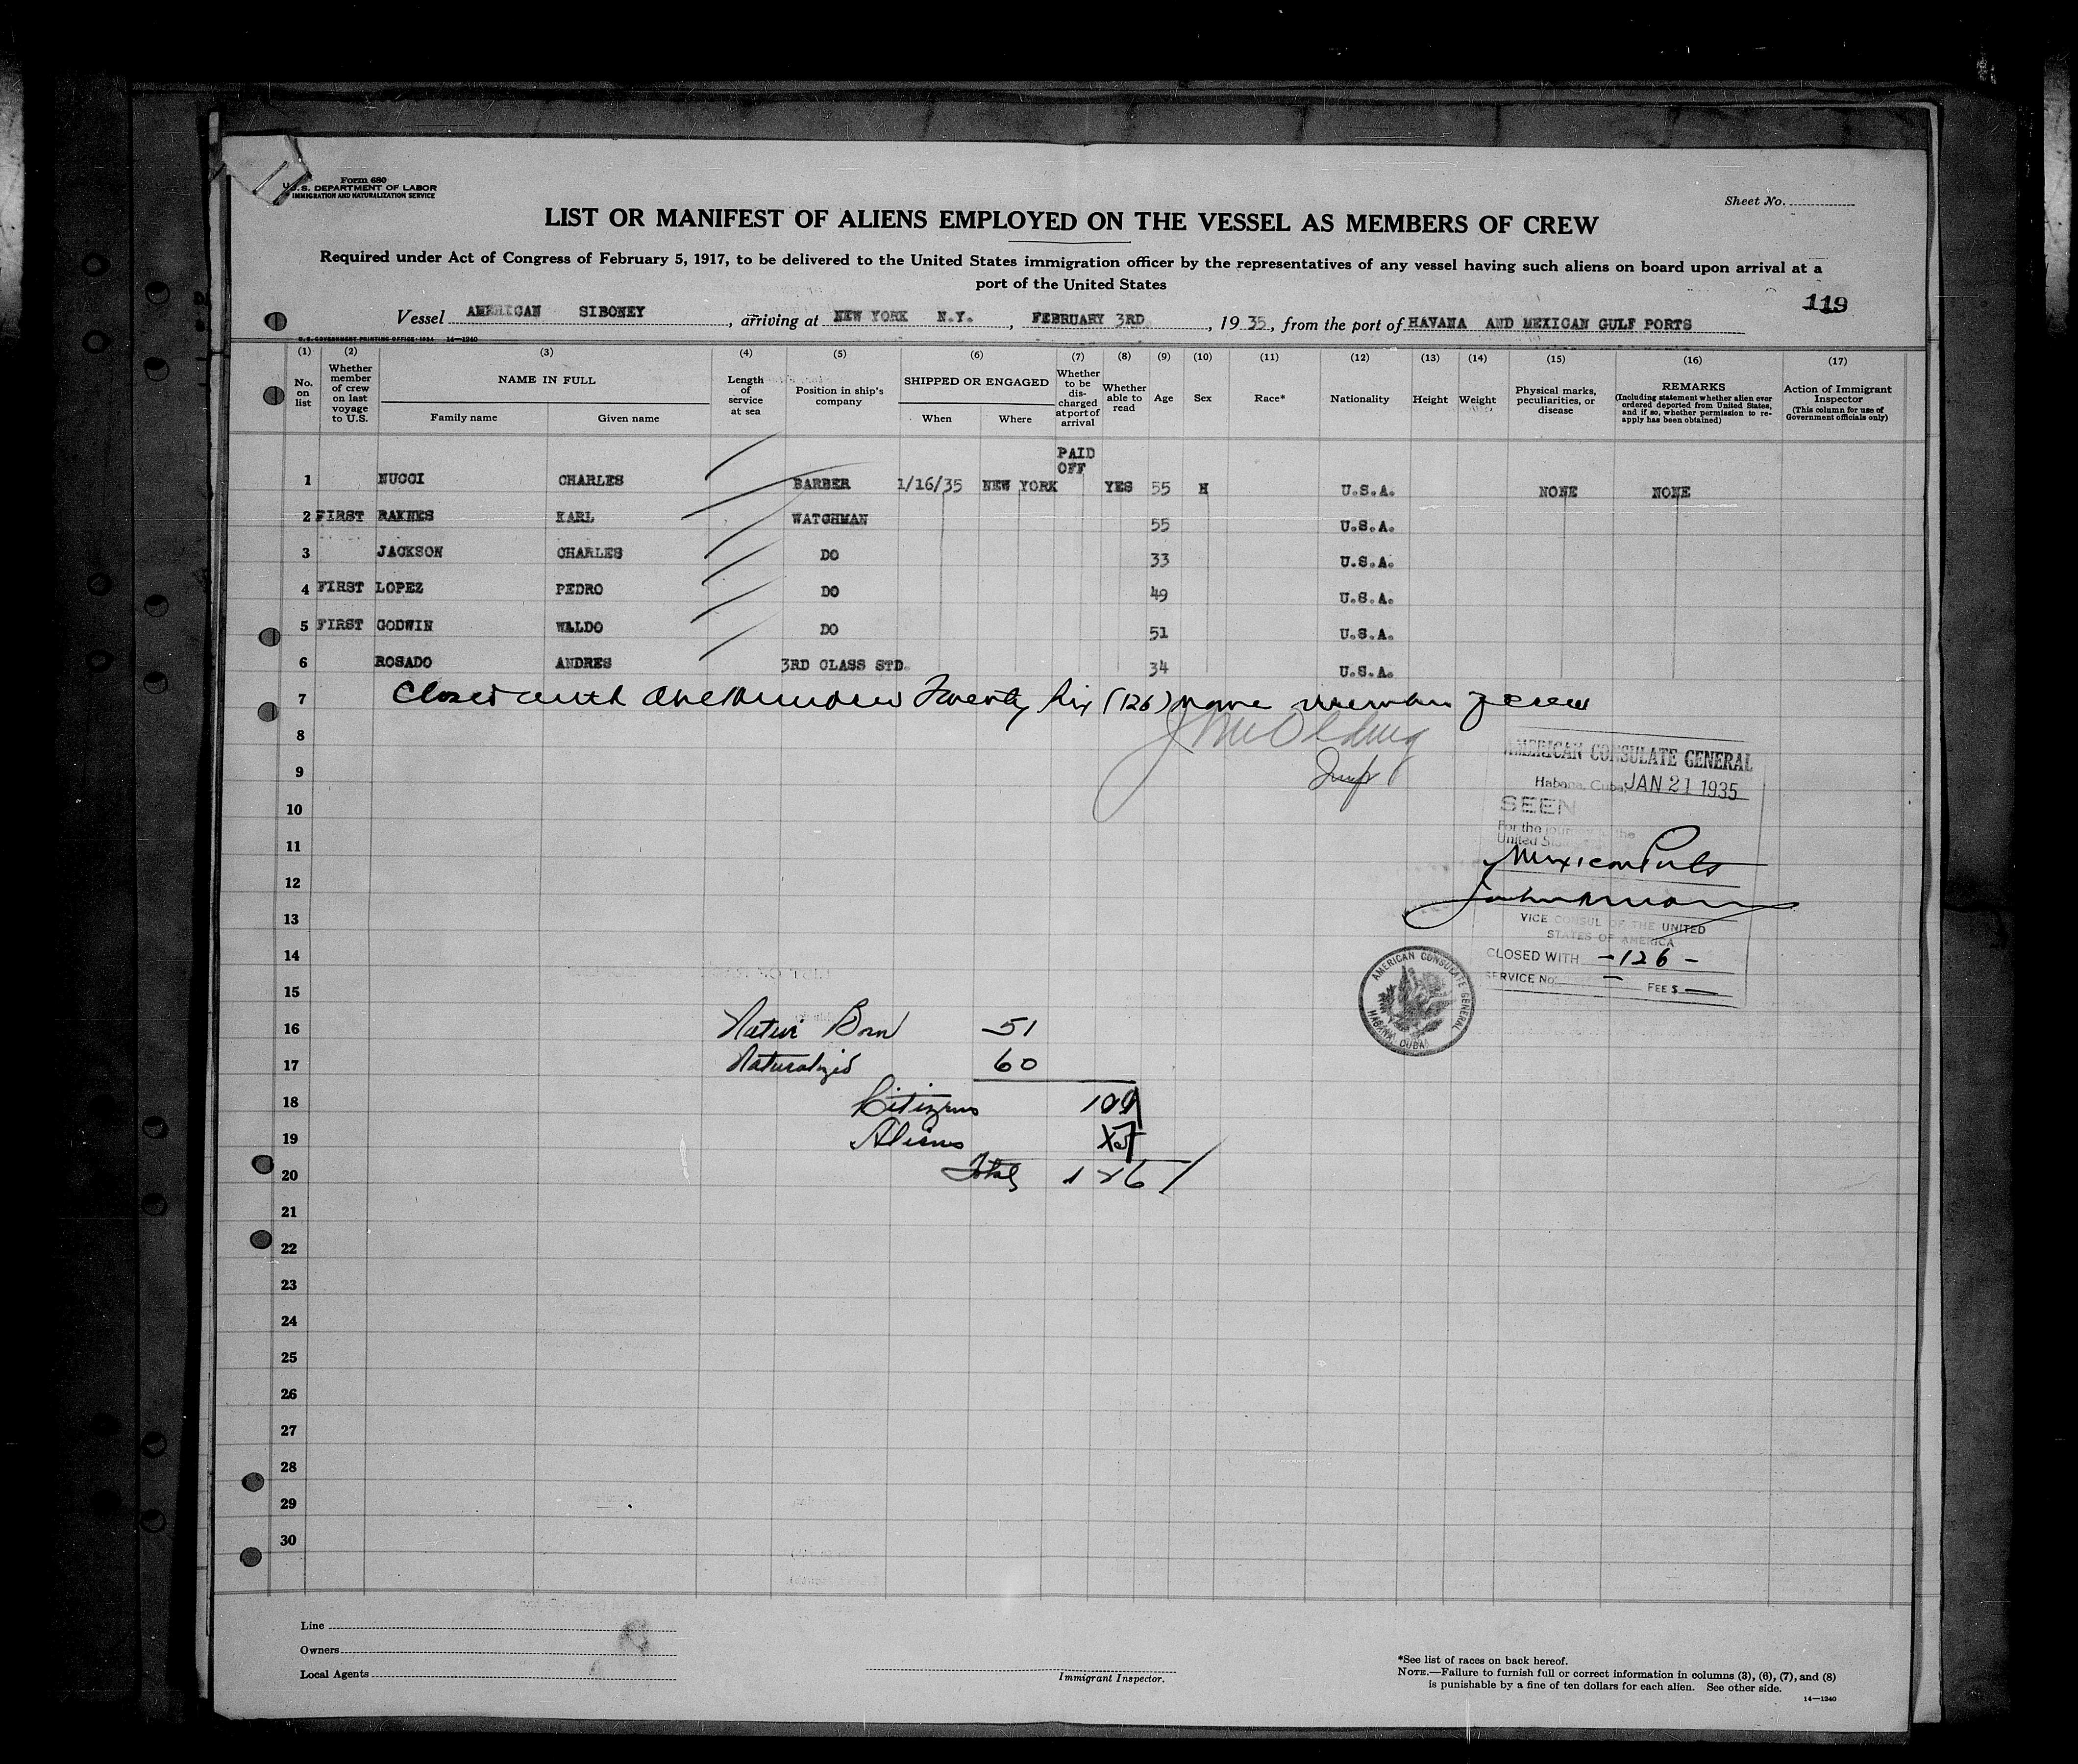 Form 680
U.S. DEPARTMENT OF LABOR
IMMIGRATION AND NATURALIZATION SERVICE
Sheet No.
LIST OR MANIFEST OF ALIENS EMPLOYED ON THE VESSEL AS MEMBERS OF CREW
Required under Act of Congress of February 5, 1917, to be delivered to the United States immigration officer by the representatives of any vessel having such aliens on board upon arrival at a
port of the United States
119
Vessel AMERICAN SIBONEY, arriving at NEW YORK N.Y., FEBRUARY 3RD, 1935, from the port of HAVANA AND MEXICAN GULF PORTS
U.S. GOVERNMENT PRINTING OFFICE: 1934 14—1240
(1) (2) (3) (4) (5) (6) (7) (8) (9) (10) (11) (12) (13) (14) (15) (16) (17)
No. on list
Whether member of crew on last voyage to U.S.
NAME IN FULL
Family name Given name
Length of service at sea
Position in ship's company
SHIPPED OR ENGAGED
When Where
Whether to be discharged at port of arrival
Whether able to read
Age
Sex
Race*
Nationality
Height
Weight
Physical marks, peculiarities, or disease
REMARKS
(Including statement whether alien ever ordered deported from United States, and if so, whether permission to re-apply has been obtained)
Action of Immigrant Inspector
(This column for use of Government officials only)
PAID
OFF
1 NUCCI CHARLES BARBER 1/16/35 NEW YORK YES 55 M U.S.A. NONE NONE
2 FIRST RAKNES KARL WATCHMAN 55 U.S.A.
3 JACKSON CHARLES DO 33 U.S.A.
4 FIRST LOPEZ PEDRO DO 49 U.S.A.
5 FIRST GODWIN WALDO DO 51 U.S.A.
6 ROSADO ANDRES 3RD CLASS STD. 34 U.S.A.
7 Closed with one hundred Twenty Six (126) name member of crew
8
9
10
11
12
13
14
15
16
17
18
19
20
21
22
23
24
25
26
27
28
29
30
AMERICAN CONSULATE GENERAL
Habana, Cuba, JAN 21 1935
SEEN
For the journey to the
United States
Mexican Ports
VICE CONSUL OF THE UNITED
STATES OF AMERICA
CLOSED WITH -126-
SERVICE No. — FEE $ —
AMERICAN CONSULATE GENERAL
HABANA, CUBA
Native Born 51
Naturalized 60
Citizens
Aliens
Total 126
Line
Owners
Local Agents
Immigrant Inspector.
*See list of races on back hereof.
NOTE.—Failure to furnish full or correct information in columns (3), (6), (7), and (8)
is punishable by a fine of ten dollars for each alien. See other side.
14—1240